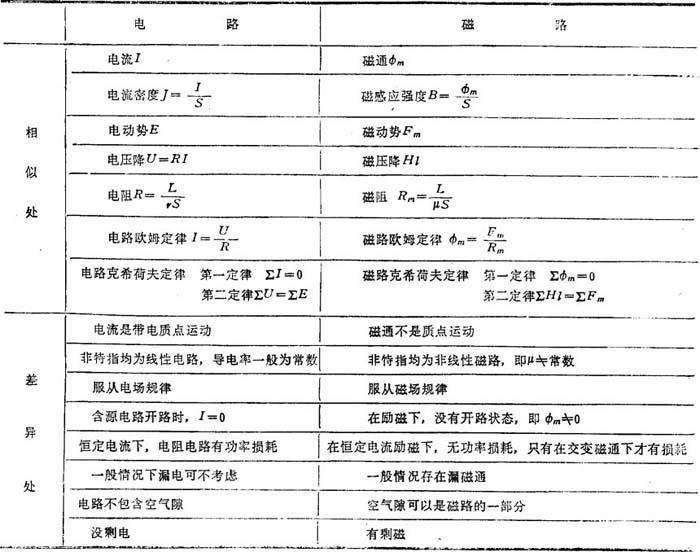 电 路 磁 路
相似处
电流I 磁通ϕm
电流密度J= I/S 磁感应强度B= ϕm/S
电动势E 磁动势Fm
电压降U=RI 磁压降Hl
电阻R= L/rS 磁阻 Rm= L/μS
电路欧姆定律 I= U/R 磁路欧姆定律 ϕm= Fm/Rm
电路克希荷夫定律 第一定律 ΣI=0 磁路克希荷夫定律 第一定律 Σϕm=0
第二定律ΣU=ΣE 第二定律ΣHl=ΣFm
差异处
电流是带电质点运动 磁通不是质点运动
非特指均为线性电路，导电率一般为常数 非特指均为非线性磁路，即μ≒常数
服从电场规律 服从磁场规律
含源电路开路时，I=0 在励磁下，没有开路状态，即 ϕm≒0
恒定电流下，电阻电路有功率损耗 在恒定电流励磁下，无功率损耗，只有在交变磁通下才有损耗
一般情况下漏电可不考虑 一般情况存在漏磁通
电路不包含空气隙 空气隙可以是磁路的一部分
没剩电 有剩磁